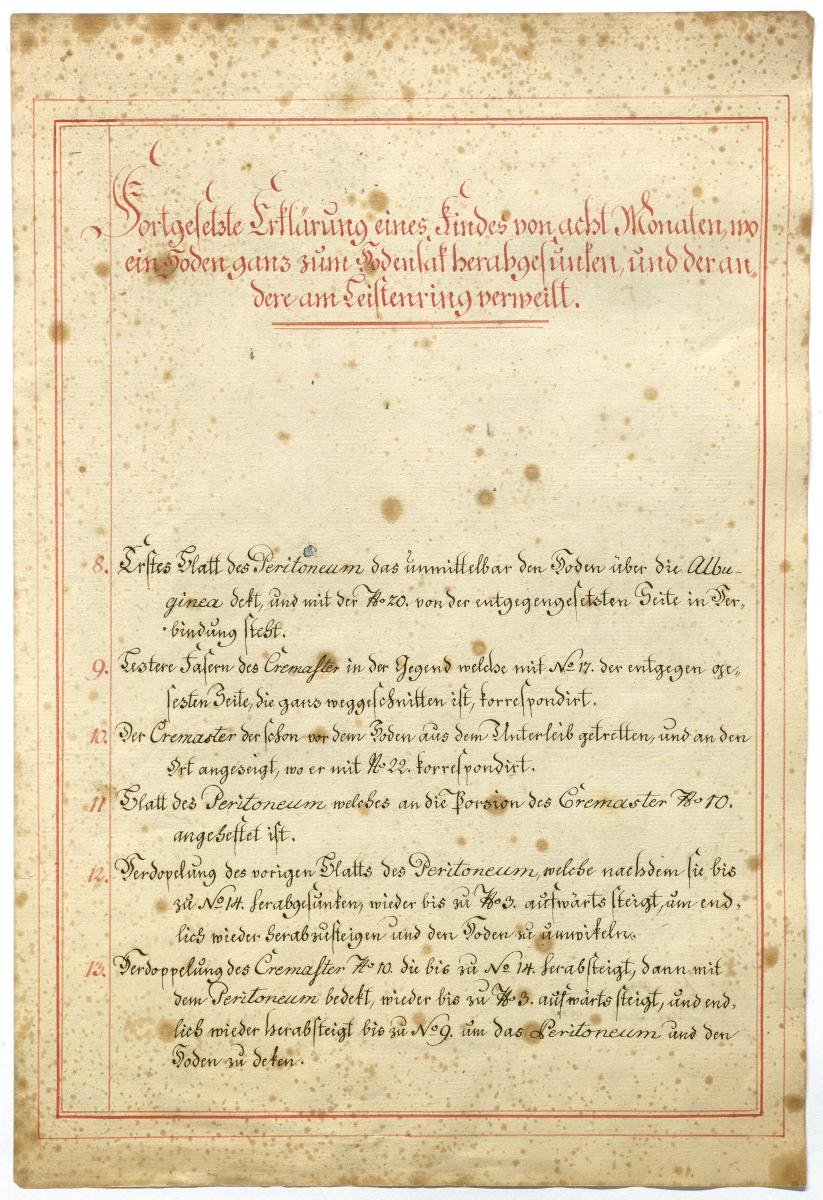 Fortgesetzte Erklärung eines Kindes von acht Monaten, wo
ein Hoden ganz zum Hodensak herabgesunken, und der an„
dere am Leistenring verweilt.
8. Erstes Blatt des Peritoneum das unmittelbar den Hoden über die Albu-
ginea dekt, und mit der No 20. von der entgegengesetzten Seite in Ver-
bindung steht.
9. Leztere Fasern des Cremaster in der Gegend welche mit No 17. der entgegen ge„
sezten Seite, die ganz weggeschnitten ist, korrespondirt.
10. Der Cremaster der schon vor dem Hoden aus dem Unterleib getretten, und an den
Ort angezeigt, wo er mit No 22. korrespondirt.
11 Blatt des Peritoneum welches an die Porzion des Cremaster No 10.
angeheftet ist.
12. Verdopelung des vorigen Blatts des Peritoneum, welche nachdem sie bis
zu No 14. herabgesunken, wieder bis zu No 3. aufwärts steigt, um end„
lich wieder herabzusteigen und den Hoden zu umwikeln.
13. Verdoppelung des Cremaster No 10. die bis zu No 14 herabsteigt, dann mit
dem Peritoneum bedekt, wieder bis zu No 3. aufwärts steigt, und end„
lich wieder herabsteigt bis zu No 9. um das Peritoneum und den
Hoden zu deken.